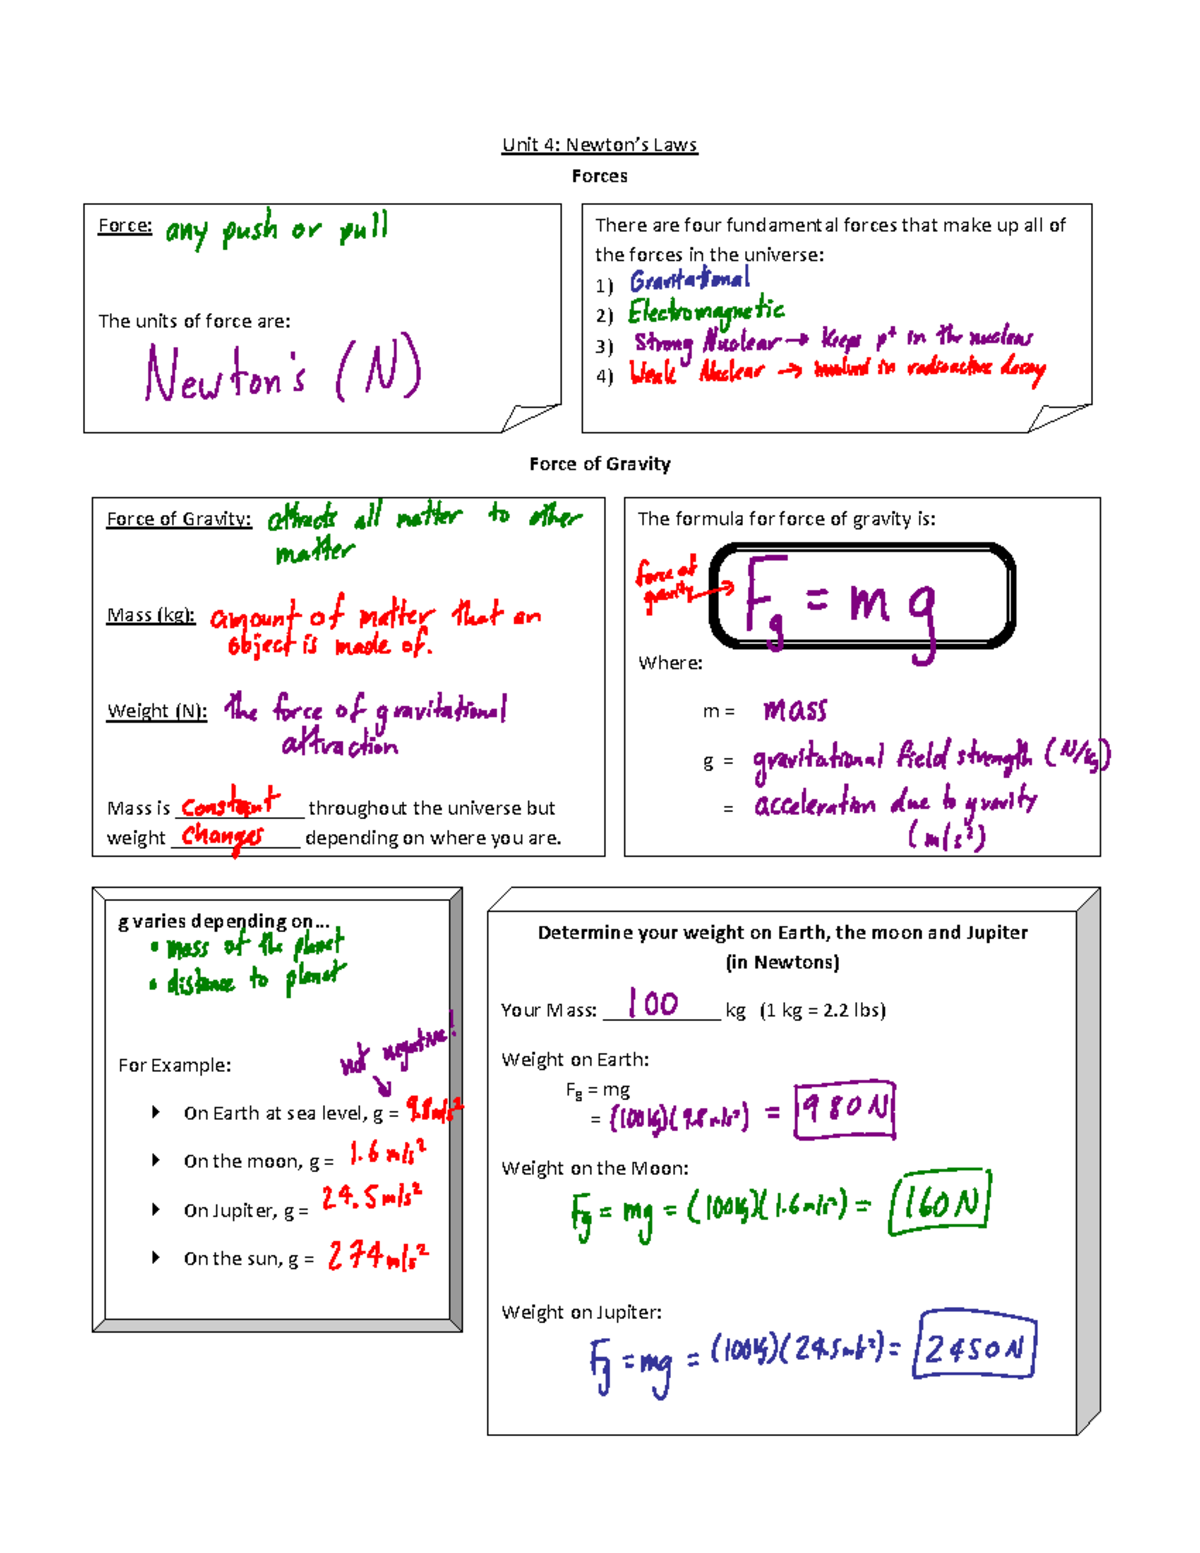 Unit 4: Newton's Laws
Forces
Force: any push or pull
The units of force are:
Newton's (N)
There are four fundamental forces that make up all of
the forces in the universe:
1) Gravitational
2) Electromagnetic
3) Strong Nuclear → keeps p⁺ in the nucleus
4) Weak Nuclear → involved in radioactive decay
Force of Gravity
Force of Gravity: attracts all matter to other
matter
Mass (kg): amount of matter that an
object is made of.
Weight (N): the force of gravitational
attraction
Mass is constant throughout the universe but
weight changes depending on where you are.
The formula for force of gravity is:
force of
gravity →
Fg = mg
Where:
m = mass
g = gravitational field strength (N/kg)
= acceleration due to gravity
(m/s²)
g varies depending on...
• mass of the planet
• distance to planet
not negative!
For Example:
On Earth at sea level, g = 9.8 m/s²
On the moon, g = 1.6 m/s²
On Jupiter, g = 24.5 m/s²
On the sun, g = 274 m/s²
Determine your weight on Earth, the moon and Jupiter
(in Newtons)
Your Mass: 100 kg (1 kg = 2.2 lbs)
Weight on Earth:
Fg = mg
= (100kg)(9.8m/s²) = 980N
Weight on the Moon:
Fg = mg = (100kg)(1.6m/s²) = 160N
Weight on Jupiter:
Fg = mg = (100kg)(24.5m/s²) = 2450N